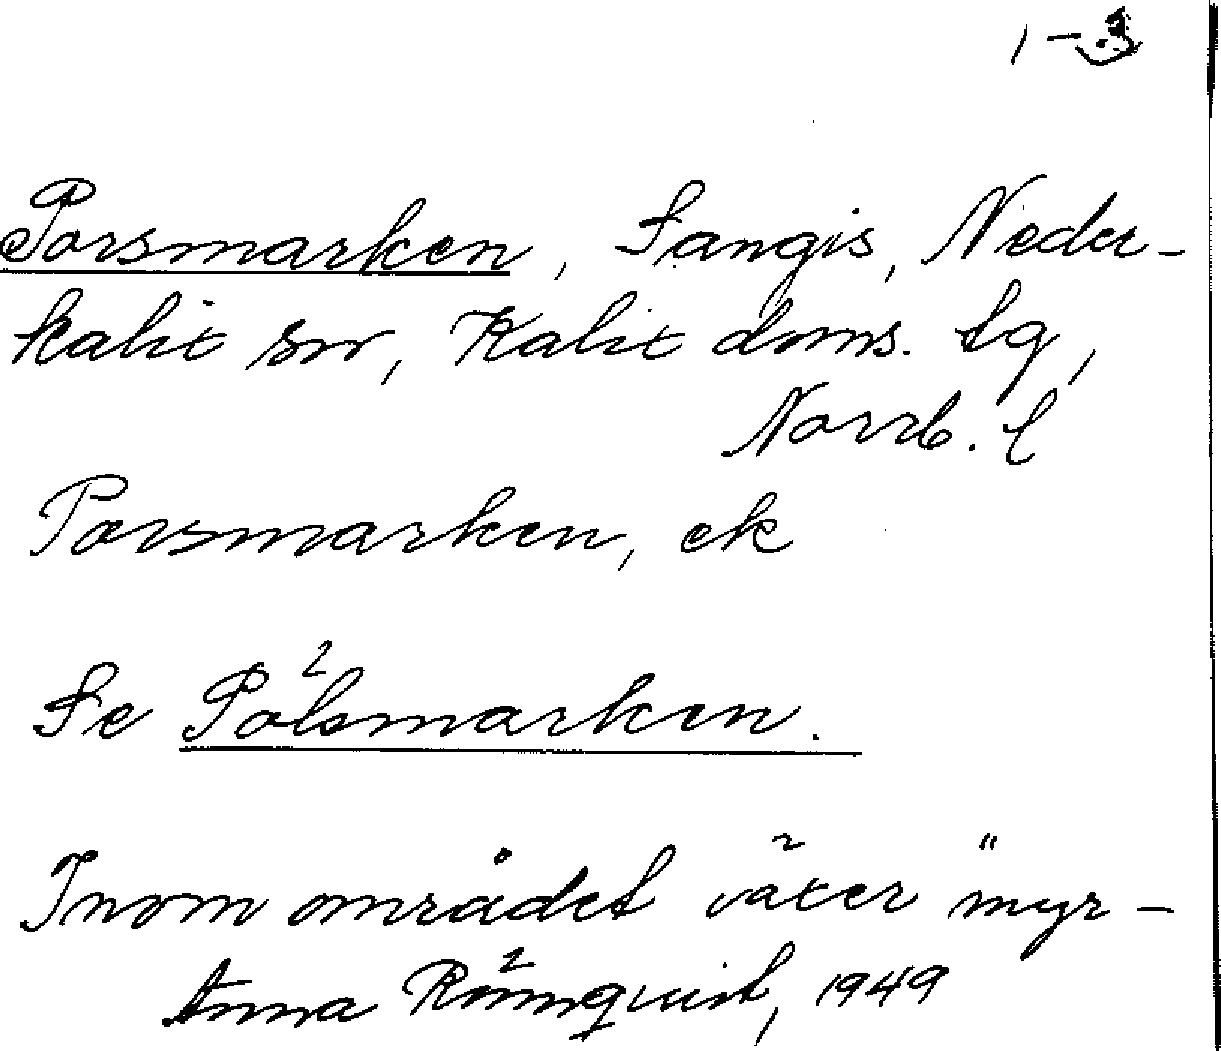 1-3
Porsmarken, Sangis, Neder-
kalix sn, Kalix doms. tg,
Norrb. l
Porsmarken, ek
Se Pölsmarken.
Inom området växer "myr-
Anna Rönnquist, 1949